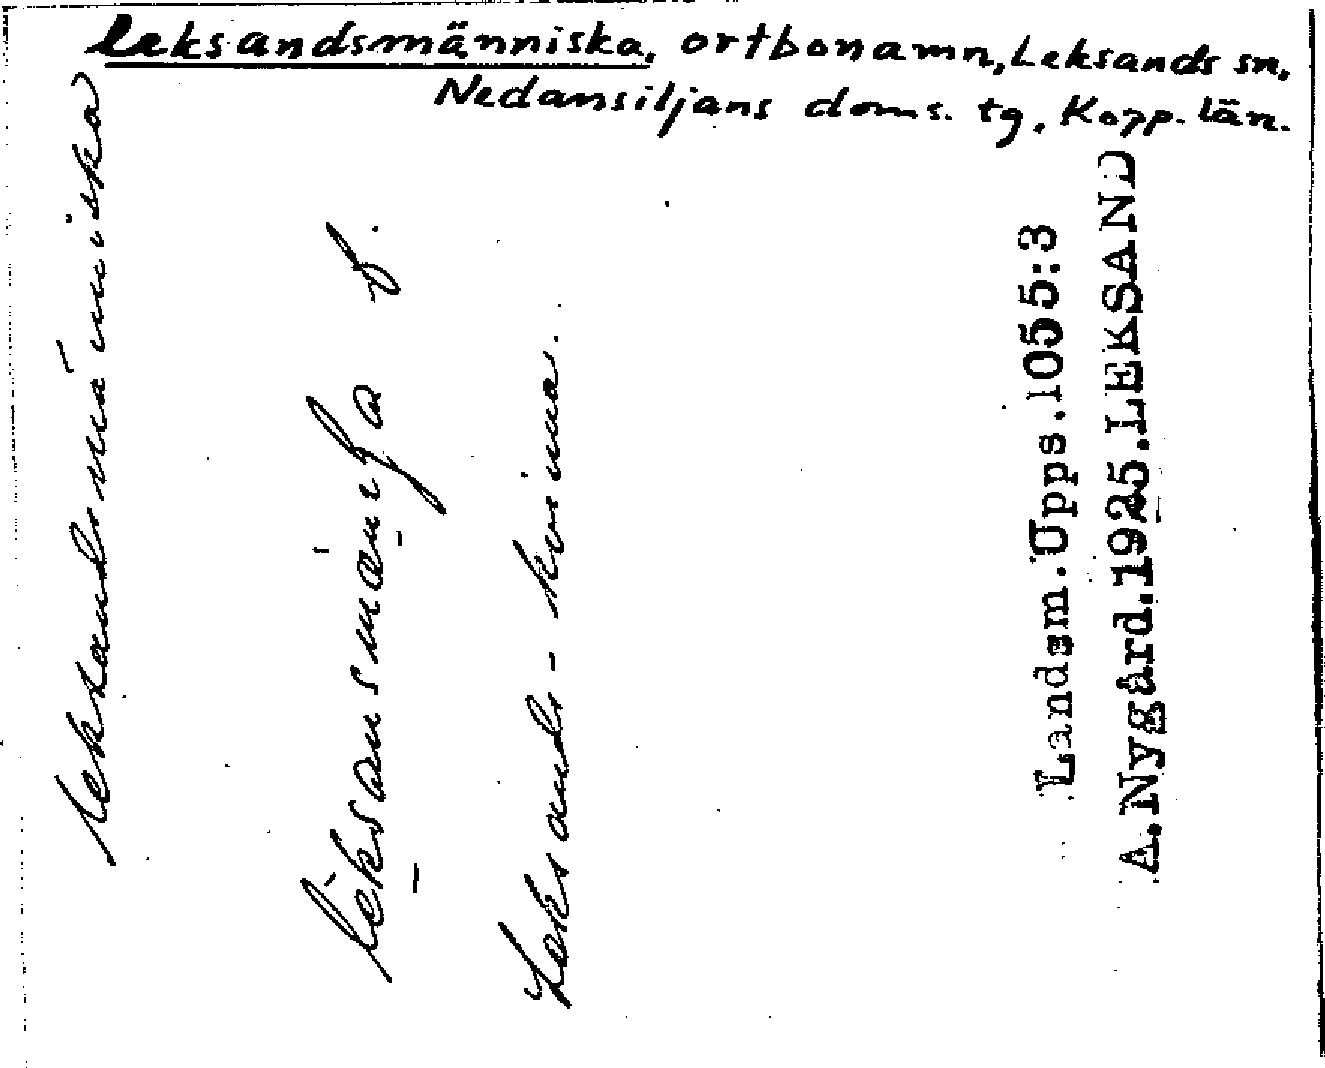 leksandsmänniska, ortbonamn, Leksands sn,
Nedansiljans doms. tg, Kopp. län.
leksandsmänniska
f.
Leksands-kvinna.
Landsm.Upps.1055:3
A.Nygård.1925.LEKSAND